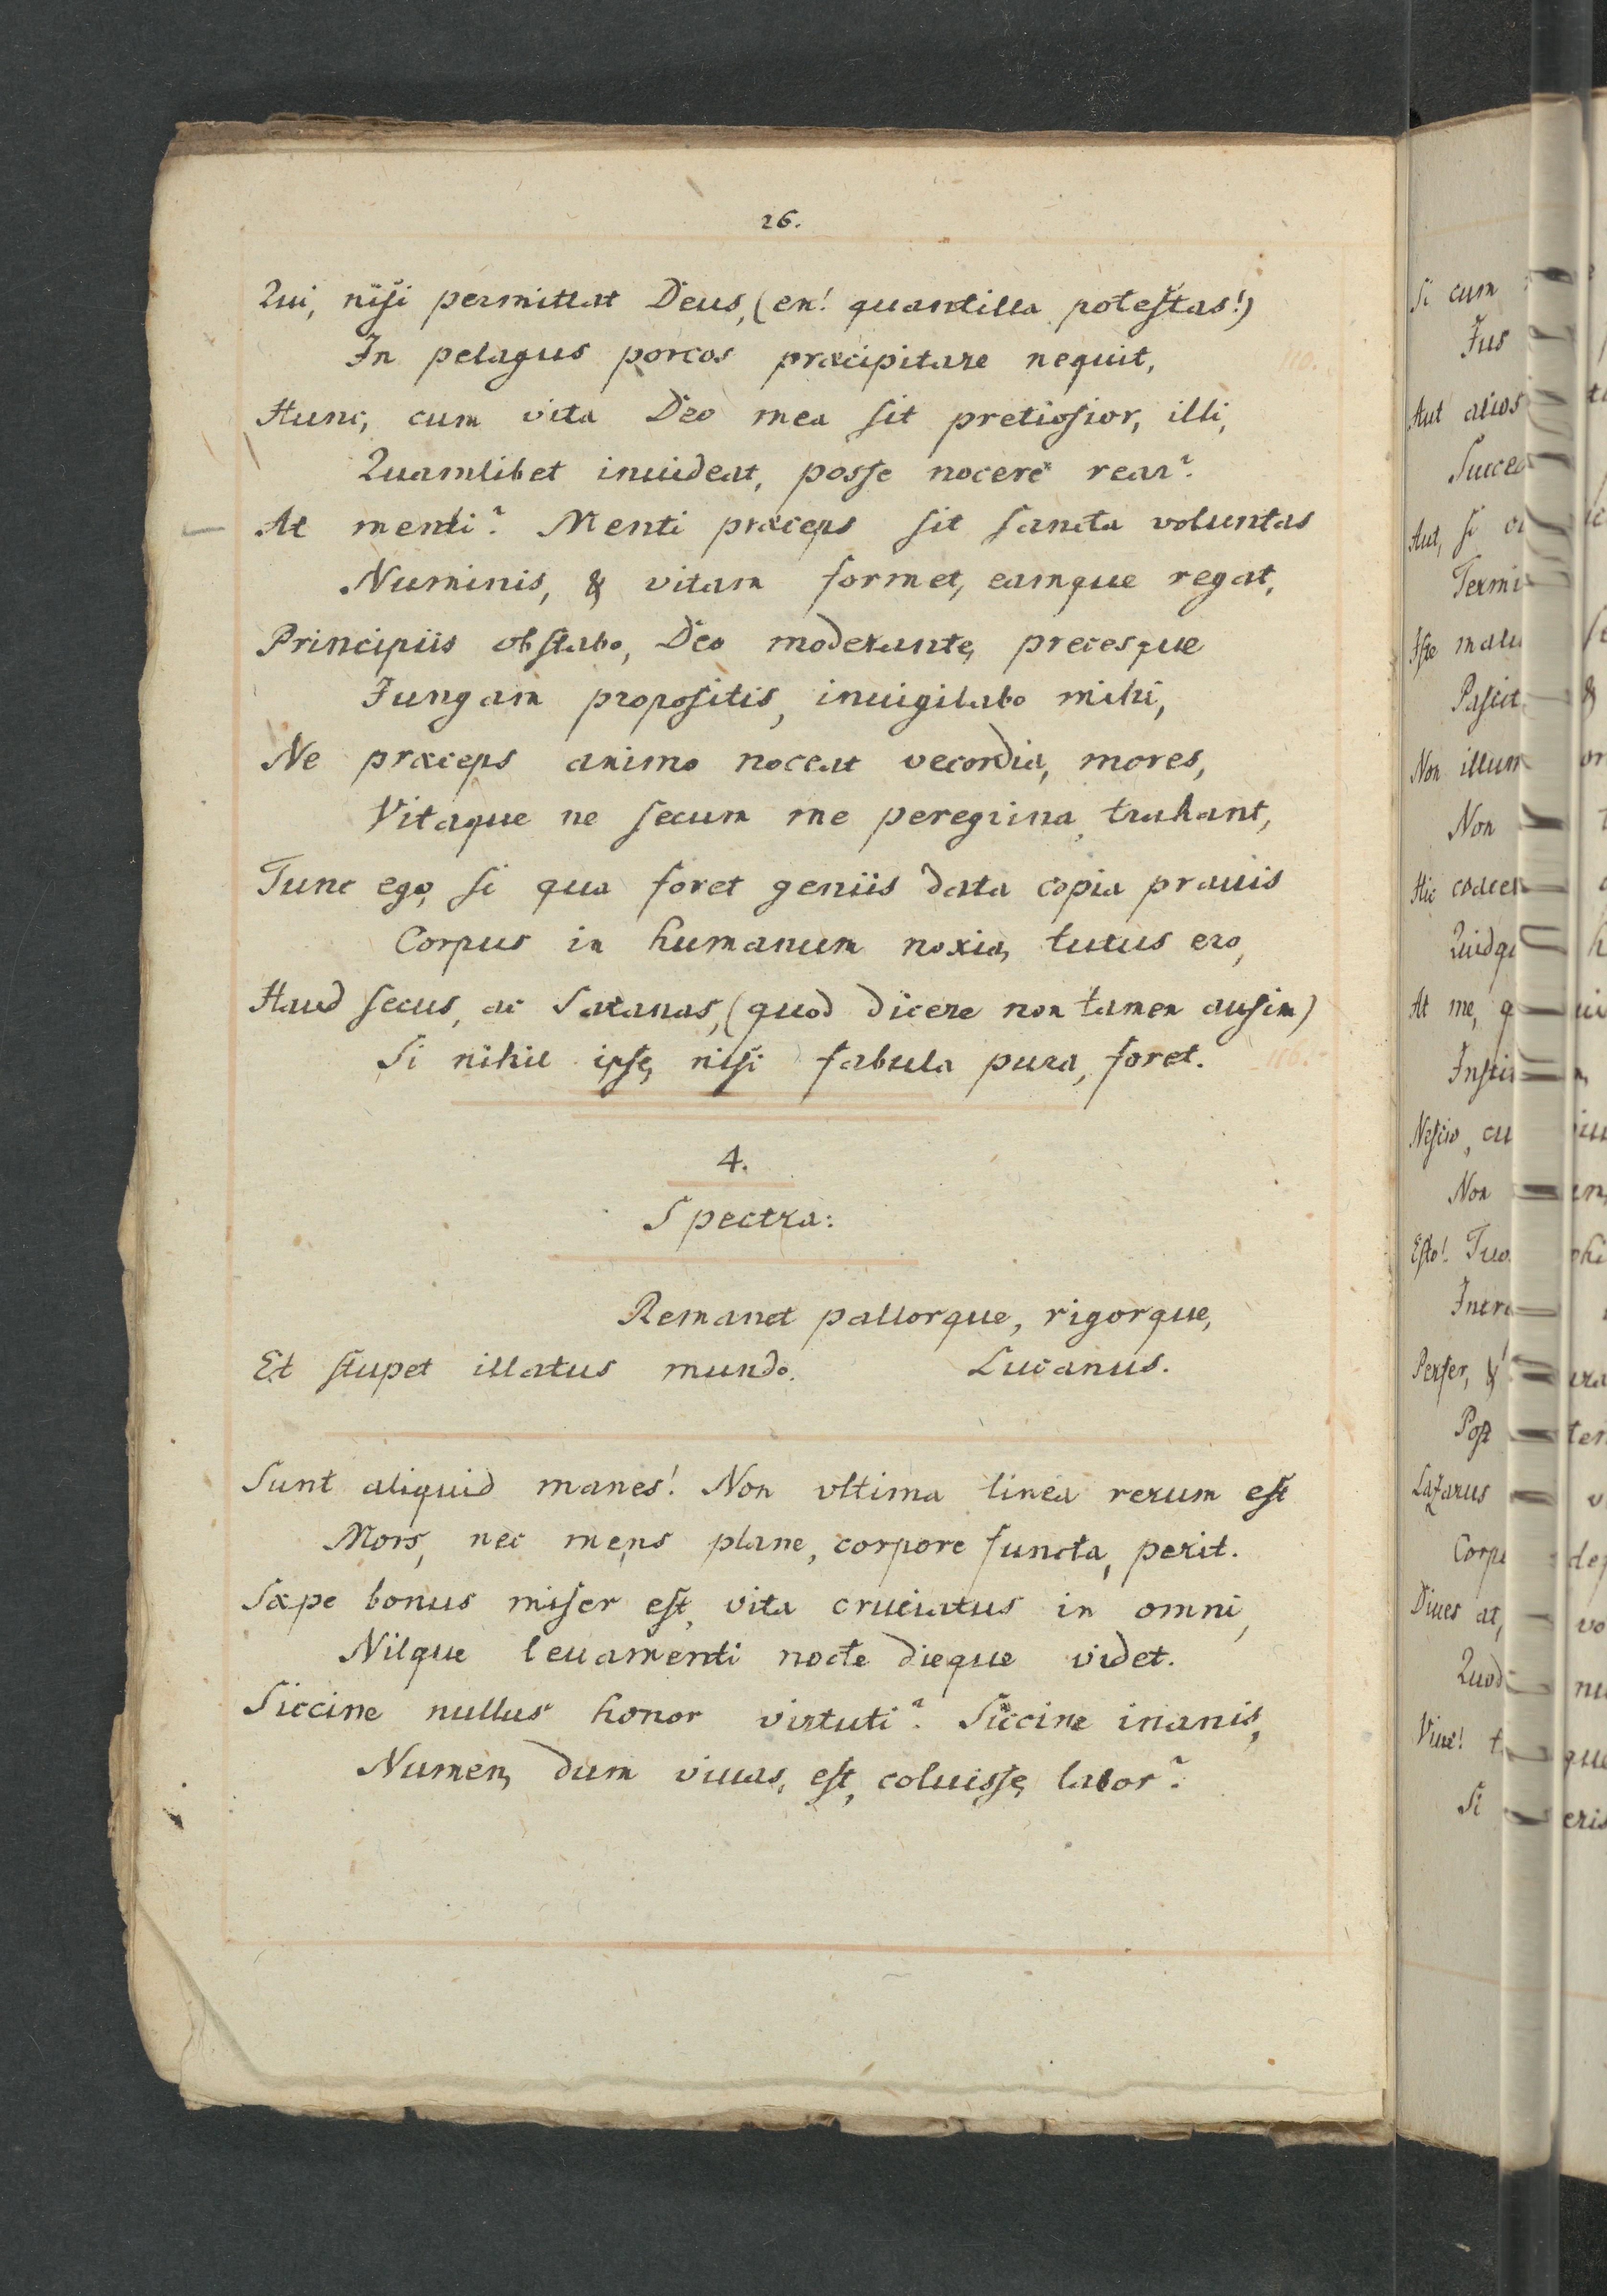 26.
Qui, nisi permittat Deus, (en! quantilla potestas!)
In pelagus porcos præcipitare nequit,
110.
Hunc, cum vita Deo mea sit pretiosior, illi,
Quamlibet inuideat, posse nocere rear?
At menti? Menti præceps sit sancta voluntas
Numinis, & vitam formet, eamque regat,
Principiis obstabo, Deo moderante, precesque
Jungam propositis, inuigilabo mihi,
Ne præceps animo noceat vecordia, mores,
Vitaque ne secum me peregrina trahant,
Tunc ego, si qua foret geniis data copia prauis
Corpus in humanum noxia, tutus ero,
Haud secus, ac Satanas, (quod dicere non tamen ausim)
Si nihil ipse, nisi fabula pura, foret.
116.
4.
Spectra:
Remanet pallorque, rigorque,
Et stupet illatus mundo. Lucanus.
Sunt aliquid manes! Non vltima linea rerum est
Mors, nec mens plane, corpore functa, perit.
Sæpe bonus miser est, vita cruciatus in omni,
Nilque leuamenti nocte dieque videt.
Siccine nullus honor virtuti? Siccine inanis,
Numen, dum viuas, est, coluisse, labor?
Si cum
Jus
Aut alios
Aut, si
Non illum
Non
At me,
Nescio,
Non
Esto!
Lazarus
Viue!
Si